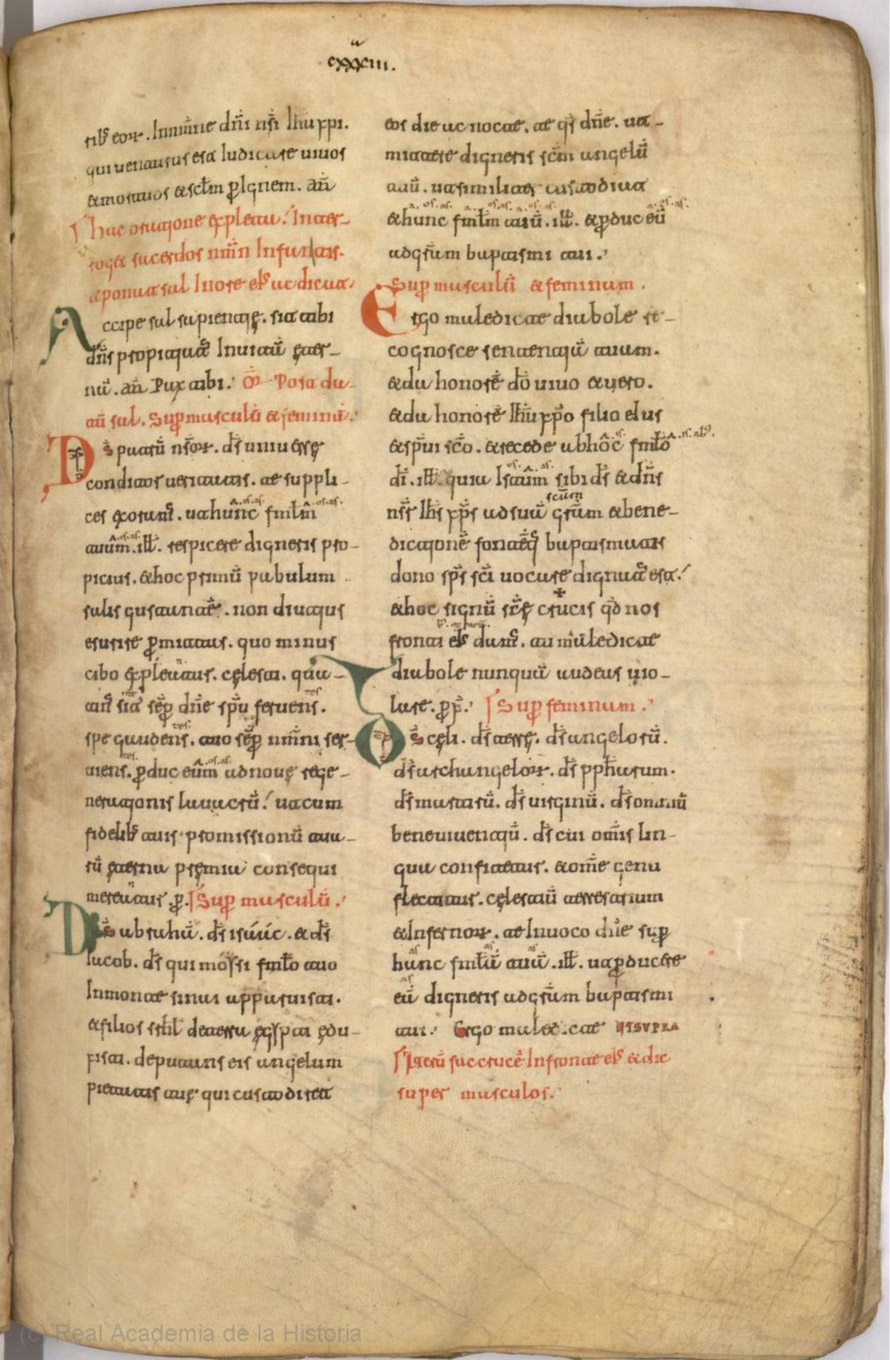 cxxxiii.
sib; eor. In nomine dñi nri ihu xpi.
qui venturus est Iudicare uiuos
et mortuos et sclm p ignem. am̄
Hac oratione expleta. Inter-
roget sacerdos nm̄n Infantis.
et ponat sal In ore eius et dicat.
Accipe sal sapientie. sit tibi
dñs propitiatus In uitā eter-
nā. am̄ Pax tibi. Or̄ Post da-
tū sal. Sup masculū et feminā.
Ds patrū nror. ds uniuerse
conditor ueritatis. te suppli-
ces exoram;. ut hunc fml̄m
tuūm. ill. respicere digneris pro-
picius. et hoc primū pabulum
salis gustantē. non diutius
esurire pmittas. quo minus
cibo expleatur. celesti. qua-
tin; sit sēp dñe spu feruens.
spe gaudens. tuo sēp nm̄ni ser-
uiens. pduc eūm ad noue rege-
nerationis lauacrū. ut cum
fidelib; tuis promissionū tua-
rū eterna premia consequi
mereatur. p. Sup masculū.
Ds abrahā. ds isáác. et ds
iacob. ds qui moẏsi fml̄o tuo
In monte sinai apparuisti.
et filios isrl̄ de terra egipti edu-
xisti. deputans eis angelum
pietatis tue qui custodiret
eos die ac nocte. te qs dñe. ut
mittere digneris scm̄ angelū
tuū. ut similiter custodiat
et hunc fml̄m tuū. ill. et pducat eū
ad grām baptismi tui.
Sup masculū et feminam.
Ergo maledicte diabole re-
cognosce sententiā tuam.
et da honorē dō uiuo et uero.
et da honorē ihu xpo filio eius
et spui sco. et recede ab hôc fml̄o
di. ill. quia Istūm sibi ds et dñs
nsr ihs xps ad suā scam grām et bene-
dictionē fontēq; baptismatis
dono sps sci uocare dignatus est.
et hoc signū sce crucis qd nos
fronti eius dam;. tu maledicte
diabole nunquā audeas uio-
lare. p. Sup feminam.
Ds celi. ds terre. ds angelorū.
ds archangelor. ds pphetarum.
ds martirū. ds uirginū. ds omniū
bene uiuentiū. ds cui om̄is lin-
gua confitetur. et om̄e genu
flectatur. celestiū terrestrium
et Infernor. te Inuoco dñe sup
hunc fml̄m tuū. ill. ut pducere
eū digneris ad grām baptismi
tui. Ergo maled.cte UT SUPRA
Iterū fac crucē In fronte eius et dic
super masculos.
(c) Real Academia de la Historia